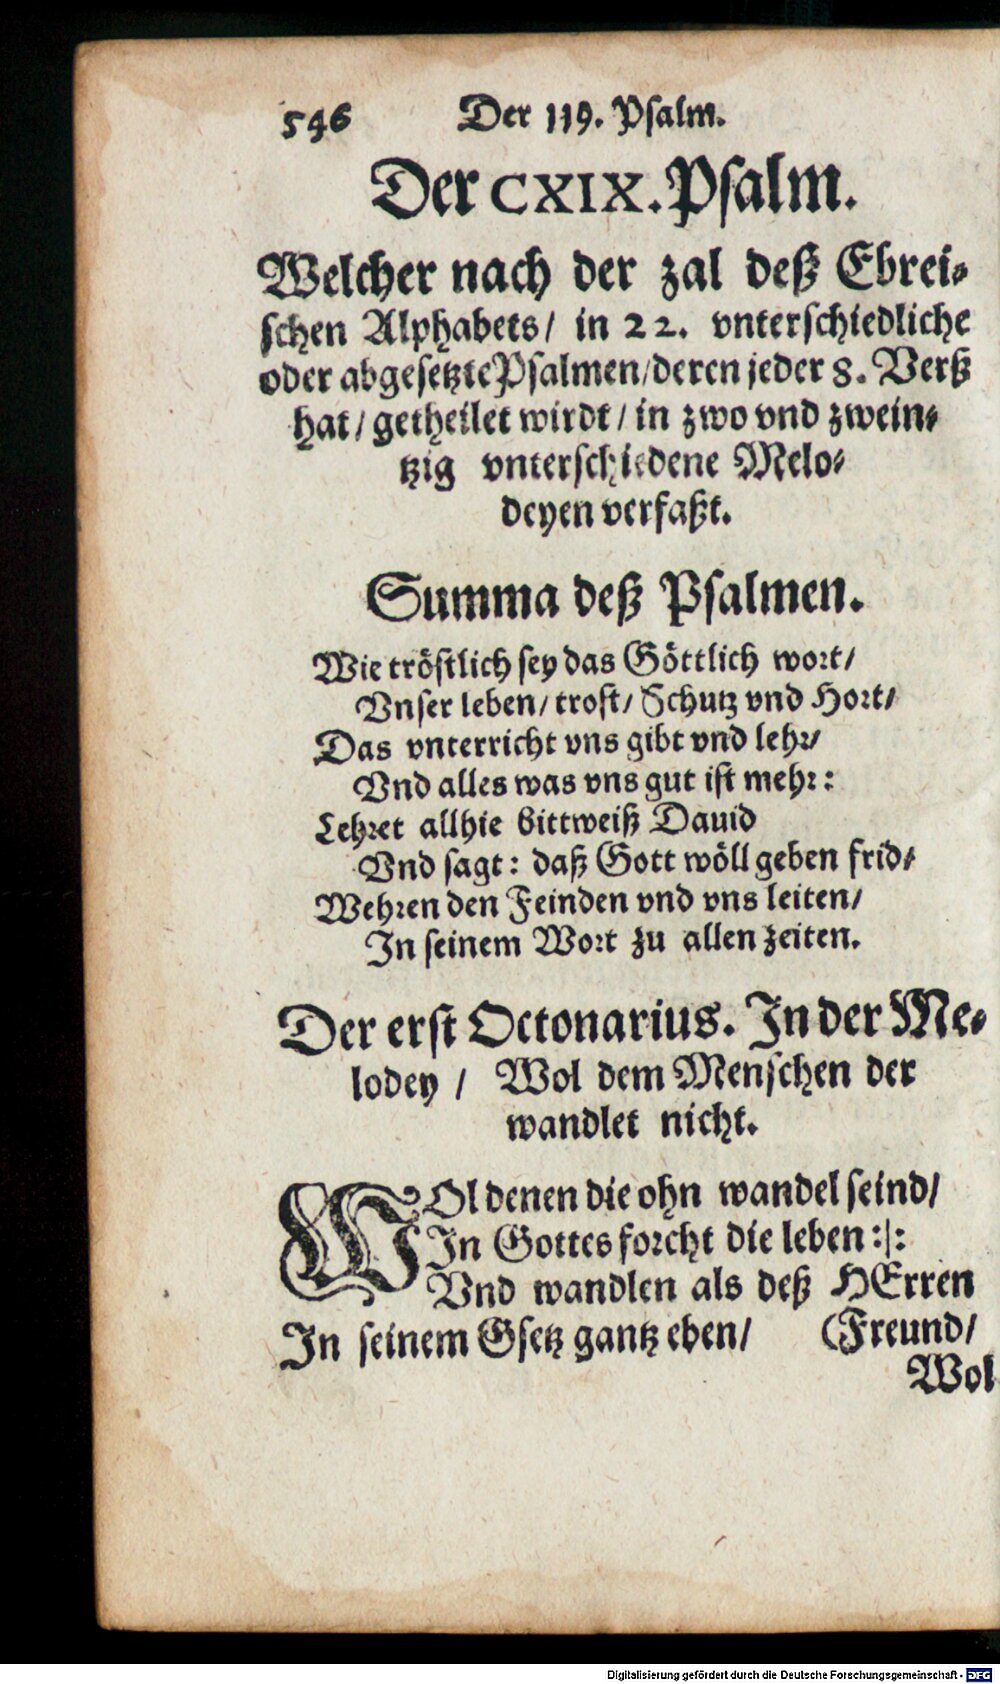 546 Der 119. Psalm.
Der CXIX. Psalm.
Welcher nach der zal deß Ebrei-
schen Alphabets/ in 22. vnterschiedliche
oder abgesetzte Psalmen/ deren jeder 8. Verß
hat/ getheilet wirdt/ in zwo vnd zwein-
tzig vnterschiedene Melo-
deyen verfaßt.
Summa deß Psalmen.
Wie tröstlich sey das Göttlich wort/
Vnser leben/ trost/ Schutz vnd Hort/
Das vnterricht vns gibt vnd lehr/
Vnd alles was vns gut ist mehr:
Lehret allhie bittweiß Dauid
Vnd sagt: daß Gott wöll geben frid/
Wehren den Feinden vnd vns leiten/
In seinem Wort zu allen zeiten.
Der erst Octonarius. In der Me-
lodey / Wol dem Menschen der
wandlet nicht.
WOl denen die ohn wandel seind/
In Gottes forcht die leben :|:
Vnd wandlen als deß HErren
In seinem Gsetz gantz eben/ (Freund/
Wol
Digitalisierung gefördert durch die Deutsche Forschungsgemeinschaft - DFG